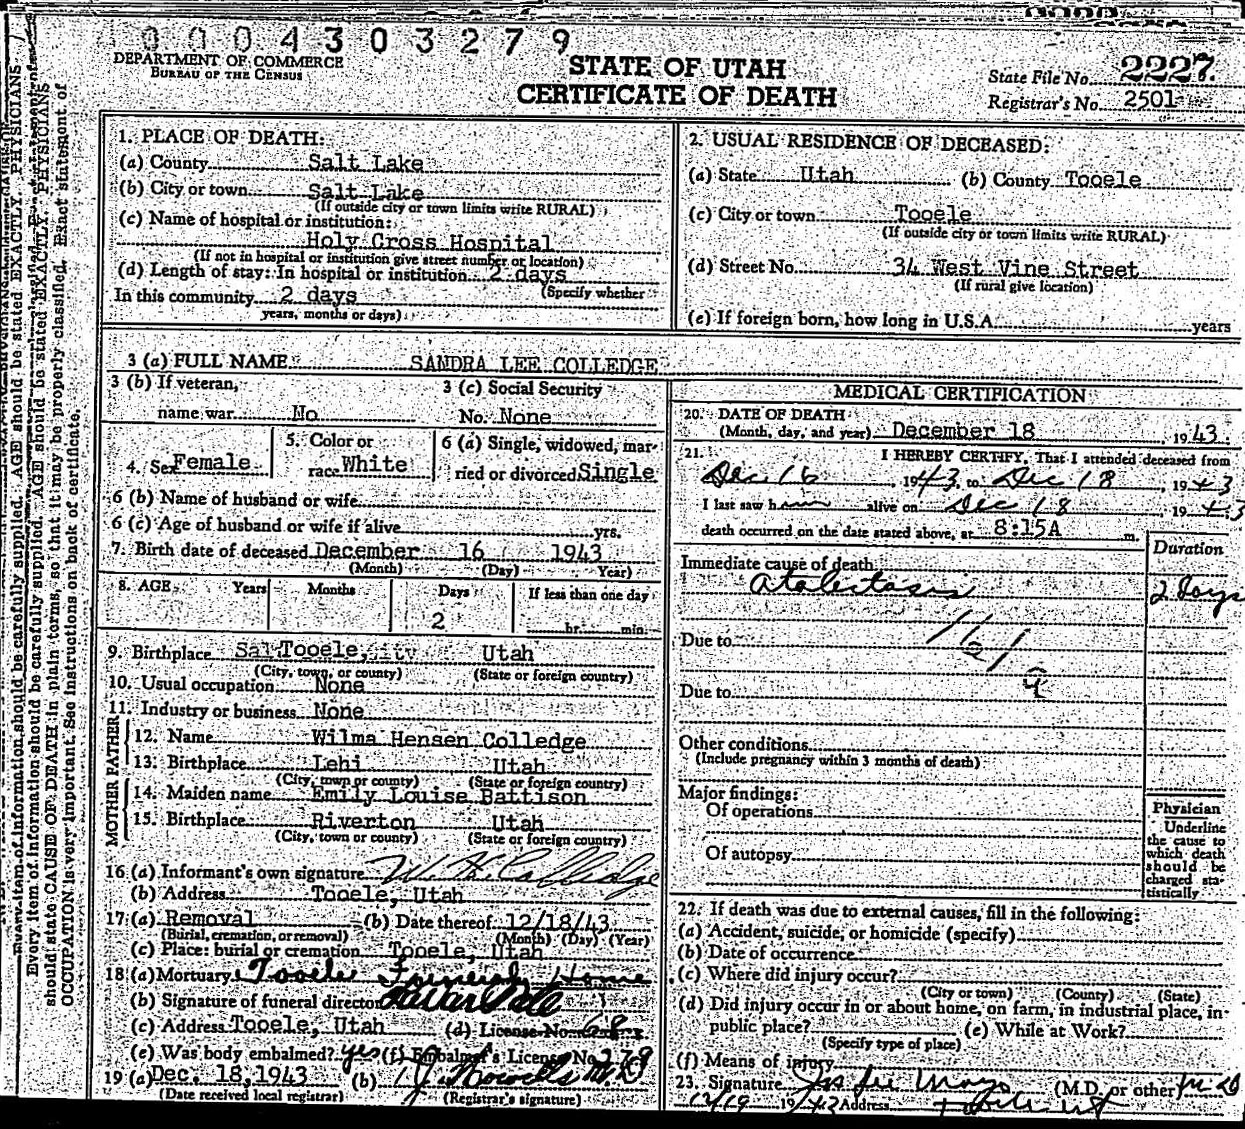 0 0 0 4 3 0 3 2 7 9
DEPARTMENT OF COMMERCE
BUREAU OF THE CENSUS
STATE OF UTAH
CERTIFICATE OF DEATH
State File No. 2227.
Registrar's No. 2501
1. PLACE OF DEATH:
(a) County Salt Lake
(b) City or town Salt Lake
(If outside city or town limits write RURAL)
(c) Name of hospital or institution:
Holy Cross Hospital
(If not in hospital or institution give street number or location)
(d) Length of stay: In hospital or institution 2 days
(Specify whether
In this community 2 days
years, months or days)
2. USUAL RESIDENCE OF DECEASED:
(a) State Utah (b) County Tooele
(c) City or town Tooele
(If outside city or town limits write RURAL)
(d) Street No. 34 West Vine Street
(If rural give location)
(e) If foreign born, how long in U.S.A. years
3 (a) FULL NAME SANDRA LEE COLLEDGE
3 (b) If veteran, 3 (c) Social Security
name war No No. None
4. Sex Female 5. Color or race White 6 (a) Single, widowed, married or divorced Single
6 (b) Name of husband or wife
6 (c) Age of husband or wife if alive yrs.
7. Birth date of deceased December 16 1943
(Month) (Day) Year)
8. AGE Years Months Days If less than one day
2 hr. min.
9. Birthplace Tooele, Utah
(City, town, or county) (State or foreign country)
10. Usual occupation None
11. Industry or business None
FATHER
12. Name Wilma Hensen Colledge
13. Birthplace Lehi Utah
(City, town or county) (State or foreign country)
MOTHER
14. Maiden name Emily Louise Battison
15. Birthplace Riverton Utah
(City, town or county) (State or foreign country)
16 (a) Informant's own signature W. H. Colledge
(b) Address Tooele, Utah
17. (a) Removal (b) Date thereof 12/18/43
(Burial, cremation, or removal) (Month) (Day) (Year)
(c) Place: burial or cremation Tooele, Utah
18 (a) Mortuary Tooele Funeral Home
(b) Signature of funeral director
(c) Address Tooele, Utah (d) License No. 68
(e) Was body embalmed? yes (f) Embalmer's License No. 278
19 (a) Dec. 18, 1943 (b)
(Date received local registrar) (Registrar's signature)
MEDICAL CERTIFICATION
20. DATE OF DEATH
(Month, day, and year) December 18, 1943.
21. I HEREBY CERTIFY, That I attended deceased from
Dec. 16, 1943, to Dec 18, 1943
I last saw h alive on Dec 18, 1943
death occurred on the date stated above, at 8:15A m.
Duration
Immediate cause of death
Atalectasis 2 Days
Due to 161
Due to
Other conditions
(Include pregnancy within 3 months of death)
Major findings:
Of operations
Of autopsy
Physician
Underline
the cause to
which death
should be
charged sta-
tistically
22. If death was due to external causes, fill in the following:
(a) Accident, suicide, or homicide (specify)
(b) Date of occurrence
(c) Where did injury occur?
(City or town) (County) (State)
(d) Did injury occur in or about home, on farm, in industrial place, in
public place? (e) While at Work?
(Specify type of place)
(f) Means of injury
23. Signature (M.D. or other)
Address
Every item of information should be carefully supplied. AGE should be stated EXACTLY. PHYSICIANS
should state CAUSE OF DEATH in plain terms, so that it may be properly classified. Exact statement of
OCCUPATION is very important. See instructions on back of certificate.